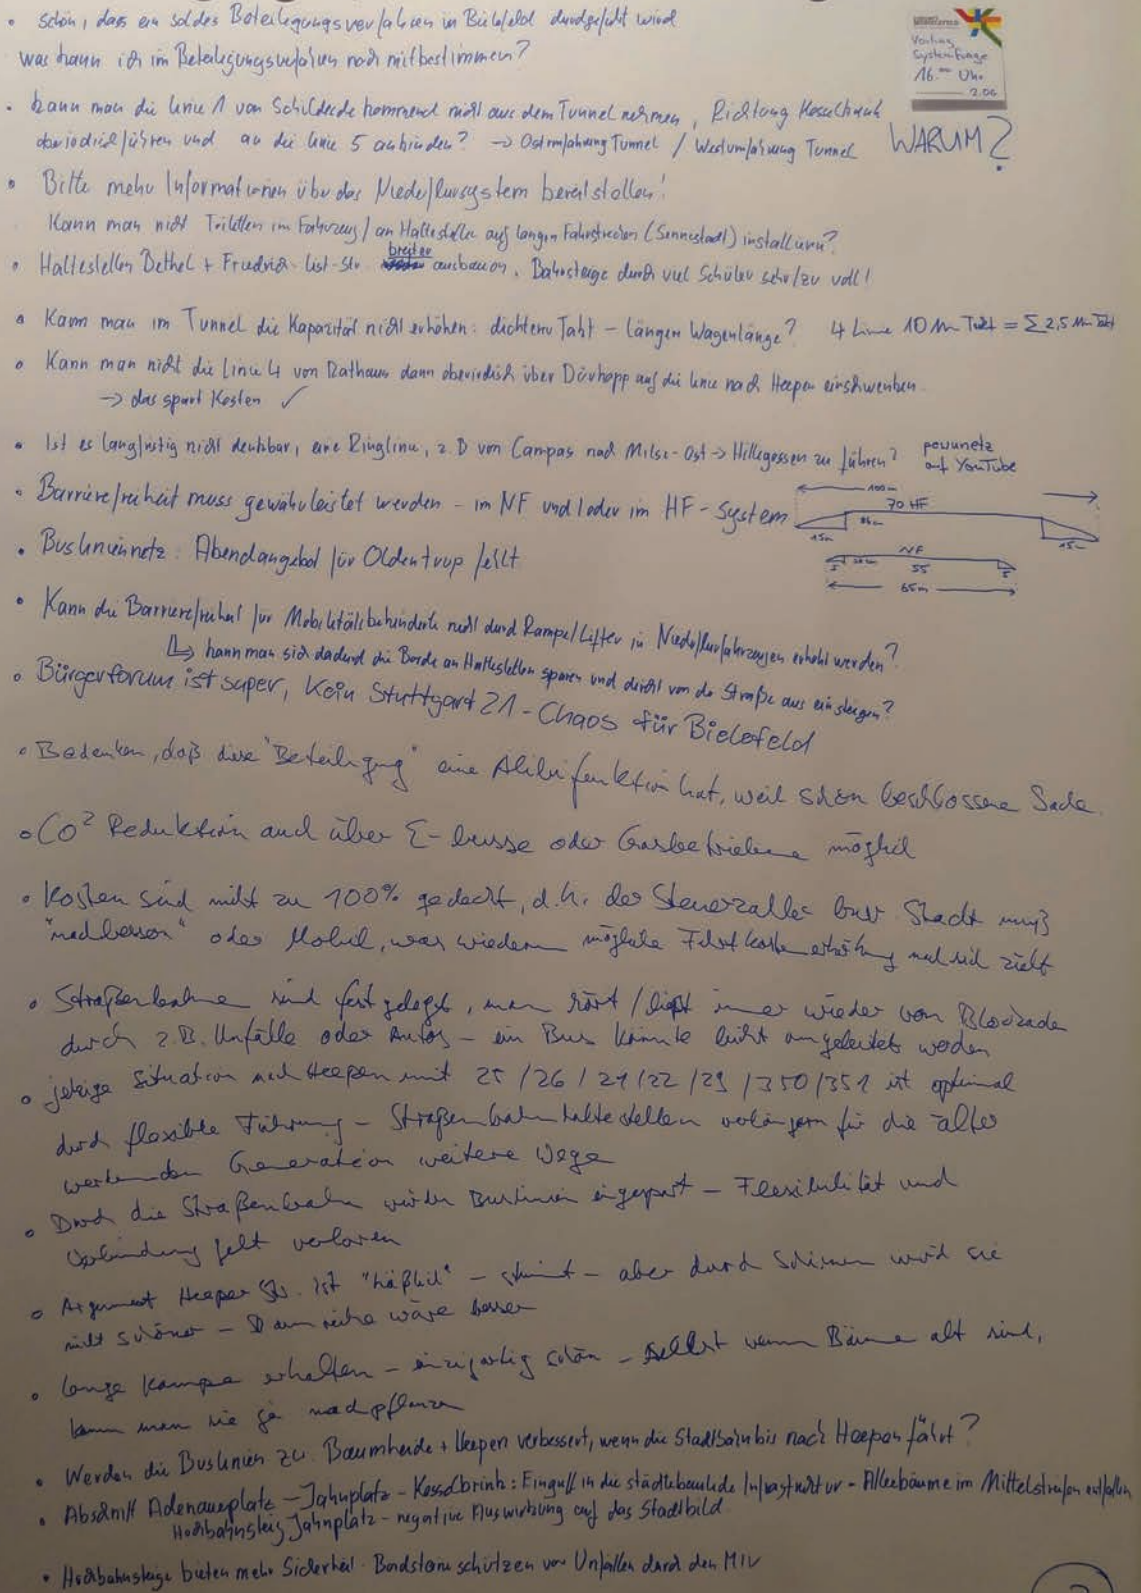 • schön, dass ein solches Beteiligungsverfahren in Bielefeld durchgeführt wird
was kann ich im Beteiligungsverfahren noch mitbestimmen?
Vortrag
Systemfrage
16.00 Uhr
2.06
• Kann man die Linie 1 von Schildesche kommend nicht aus dem Tunnel nehmen, Richtung Kesselbrink
oberirdisch führen und an die Linie 5 anbinden? → Ostumfahrung Tunnel / Westumfahrung Tunnel WARUM?
• Bitte mehr Informationen über das Niederflursystem bereitstellen!
Kann man nicht Toiletten im Fahrzeug / an Haltestelle auf langen Fahrstrecken (Sennestadt) installieren?
• Haltestellen Bethel + Friedrich-List-Str. breiter ausbauen, Bahnsteige durch viel Schüler sehr/zu voll!
• Kann man im Tunnel die Kapazität nicht erhöhen: dichtern Takt – längere Wagenlänge? 4 Linie 10 Min Takt = Σ 2,5 Min Takt
• Kann man nicht die Linie 4 von Rathaus dann oberirdisch über Dürkopp auf die Linie nach Heepen einschwenken.
→ das spart Kosten ✓
• Ist es langfristig nicht denkbar, eine Ringlinie, z.B von Campus nach Milse-Ost → Hillegossen zu führen?
auf YouTube
• Barrierefreiheit muss gewährleistet werden – im NF und/oder im HF-System
100m
70 HF
15m 15m
• Busliniennetz: Abendangebot für Oldentrup fehlt
NF
55
5 5
65m
• Kann die Barrierefreiheit für Mobilitätsbehinderte nicht durch Rampe/Lifter in Niederflurfahrzeugen erhöht werden?
↳ kann man sich dadurch die Borde an Haltestellen sparen und direkt von der Straße aus einsteigen?
• Bürgerforum ist super, Kein Stuttgart 21 - Chaos für Bielefeld
• Bedenken, daß diese "Beteiligung" eine Alibifunktion hat, weil schon beschlossene Sache.
• CO² Reduktion auch über E-busse oder Gasbetriebene möglich
• Kosten sind nicht zu 100% gedeckt, d.h. der Steuerzahler bzw. Stadt muß
"nachbessern" oder Mobiel, was wiederum mögliche Fahrtkostenerhöhung nach sich zieht
• Straßenbahne sind festgelegt, man hört / liest immer wieder von Blockade
durch z.B. Unfälle oder Autos – ein Bus könnte leicht umgeleitet werden
• jetzige Situation nach Heepen mit 25 / 26 / 21 / 22 / 29 / 350 / 351 ist optimal
durch flexible Führung – Straßenbahnhaltestellen verlängern für die älter
werdenden Generation weitere Wege
• Durch die Straßenbahn würden Buslinien eingespart – Flexibilität und
Verbindung geht verloren
• Argument Heeper Str. ist "häßlich" – stimmt – aber durch Schienen wird sie
nicht schöner – Baumreihe wäre besser
• lange Kampe erhalten – einzigartig schön – selbst wenn Bäume alt sind,
kann man sie ja nachpflanzen
• Werden die Buslinien zu Baumheide + Heepen verbessert, wenn die Stadtbahn bis nach Heepen fährt?
• Abschnitt Adenauerplatz – Jahnplatz – Kesselbrink: Eingriff in die städtebauliche Infrastruktur – Alleebäume im Mittelstreifen entfallen
Hochbahnsteig Jahnplatz – negative Auswirkung auf das Stadtbild
• Hochbahnsteige bieten mehr Sicherheit. Bordsteine schützen vor Unfällen durch den MIV